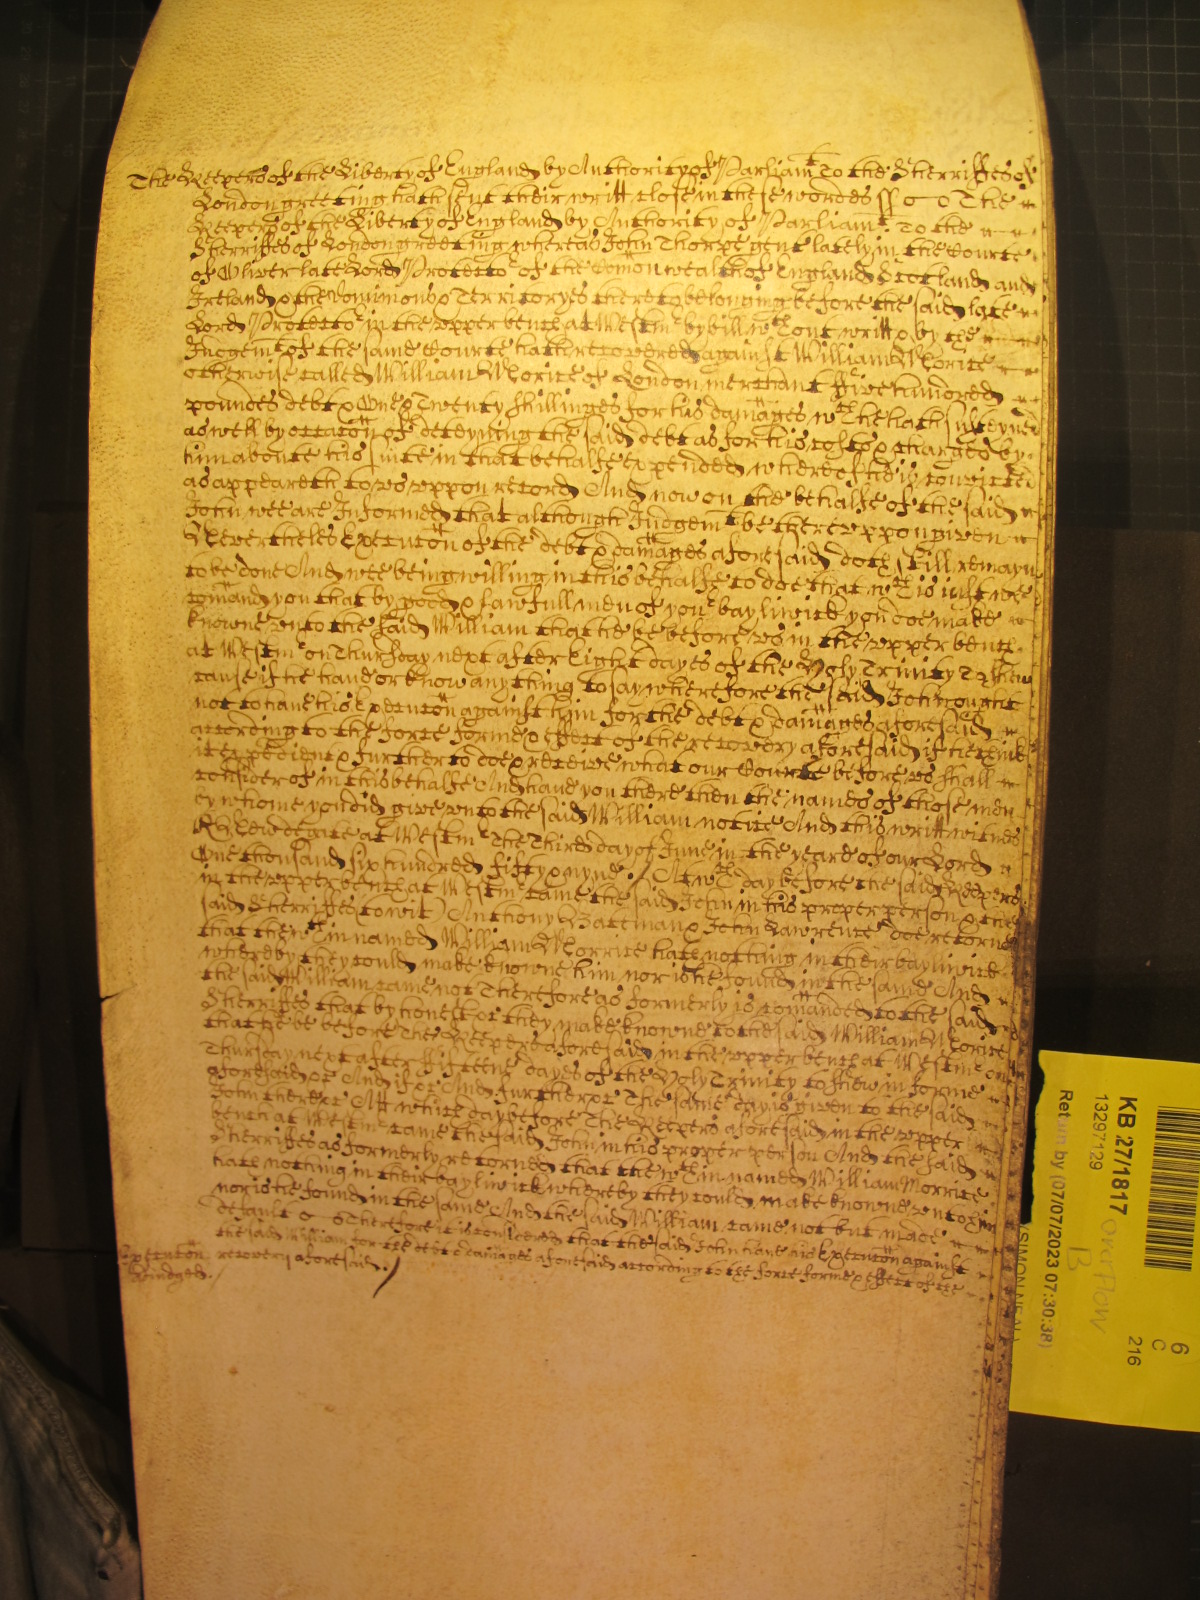 The Keepers of the Liberty of England by Authority of Parliamt To the Sherriffes of
London greeting hath sent their writt close in these wordes ss o o The
Keepers of the Liberty of England by Authority of Parliamt To the
Sherriffes of London greeting whereas John Thorpe gent lately in the Courte
of Oliver late Lord Protector of the Comon wealth of England Scotland and
Ireland & the Dominions & Territoryes thereto belonging before the said late
Lord Protector in the upper bench at Westmr by bill wth out writt & by the
Judgemt of the same Courte hath recovered against William Morrice
otherwise called William Morrice of London merchant ffive hundred
poundes debt & One & Twenty shillinges for his damages wch he hath susteyned
as well by occacon of deteyning the said debt as for his costes & charges by
him aboute his suite in that behalfe expended whereof he is convicted
as appeareth to us uppon record And now on the behalfe of the said
John wee are Informed that although Judgemt be thereuppon given
Neverthelesse Execucon of the debt & damages aforesaid doth still remayne
to be done And wee being willing in this behalfe to doe that wch is just wee
comand you that by good & lawfull men of your bayliwick you doe make
knowne unto the said William that he be before us in the upper bench
at Westmr on Thursday next after Eight dayes of the Holy Trinity To shew
cause if he have or know any thing to say wherefore the said John ought
not to have his Execucon against him for the debt & damages aforesaid
according to the force forme & effect of the recovery aforesaid if he think
it expedient & further to doe & receive what our Courte before us shall
consider of in this behalfe And have you there then the names of those men
by whome you did give unto the said William notice And this writt witnes
R Newdegate at Westmr The Third day of June in the yeare of our Lord
One thousand six hundred fifty & nyne / At wch day before the said Keepers
in the upper bench at Westmr came the said John in his proper person & the
said Sherriffes (to wit) Anthony Bateman & John Lawrence doe retorne
that the wth in named William Morrice hath nothing in their bayliwick
whereby they could make knowne him nor is he found in the same And
the said William came not Therefore as formerly is comanded to the said
Sherriffes that by honest &c they make knowne to the said William Morrice
that he be before The Keepers aforesaid in the upper bench at Westmr on
Thursday next after ffifteene dayes of the Holy Trinity to shew in forme
aforesaid &c And if &c And further &c The same day is given to the said
John there &c At which day before The Keepers aforesaid in the upper
bench at Westmr came the said John in his proper person And the said
Sherriffes as formerly retorned that the wth in named William Morrice
hath nothing in their bayliwick whereby they could make knowne unto him
nor is he found in the same And the said William came not but made
default o o Therefore it is considered that the said John have his Execucon against
the said William for the debt & damages aforesaid according to the force forme & effect of the
Execucon recovery aforesaid /
Adjudged /
KB 27/1817
13297129
Return by (07/07/2023 07:30:38)
overflow
B
6
C
216